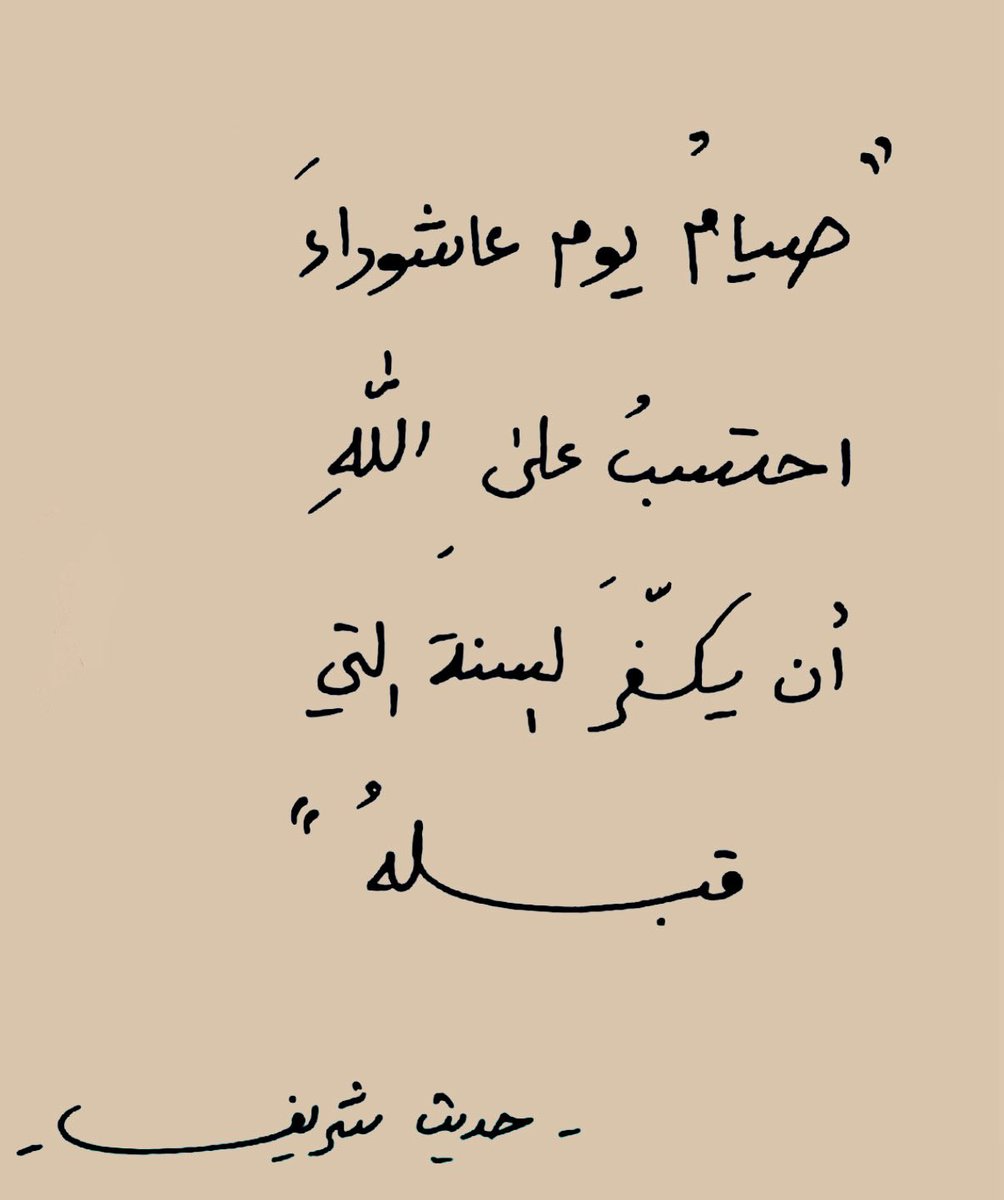 "صيامُ يوم عاشوراءَ
احتسبُ على اللّٰهِ
أُن يكفّرَ السنةَ التي
قبلهُ"
- حديث شريف -